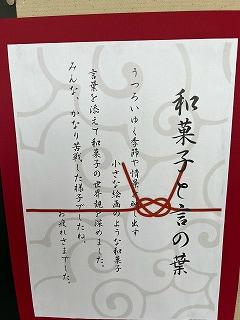 和菓子と言の葉
うつろいゆく季節や情景 し出す
小さな絵画のような和菓子
言葉を添えて和菓子の世界観を深めました。
みんな、かなり苦戦した様子でしたね。
お疲れさまでした。